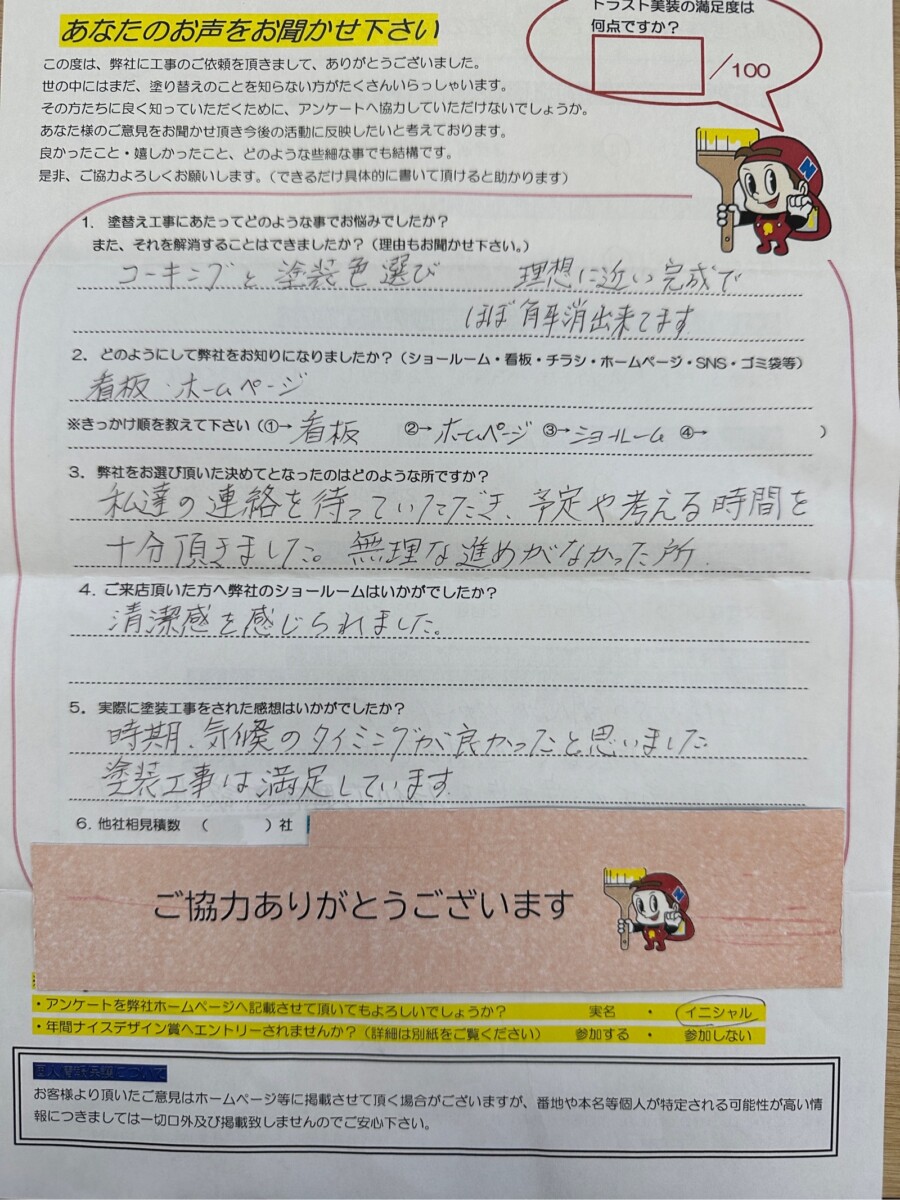 あなたのお声をお聞かせ下さい
トラスト美装の満足度は
何点ですか?
/100
この度は、弊社に工事のご依頼を頂きまして、ありがとうございました。
世の中にはまだ、塗り替えのことを知らない方がたくさんいらっしゃいます。
その方たちに良く知っていただくために、アンケートへ協力していただけないでしょうか。
あなた様のご意見をお聞かせ頂き今後の活動に反映したいと考えております。
良かったこと・嬉しかったこと、どのような些細な事でも結構です。
是非、ご協力よろしくお願いします。(できるだけ具体的に書いて頂けると助かります)
1. 塗替え工事にあたってどのような事でお悩みでしたか?
また、それを解消することはできましたか?(理由もお聞かせ下さい。)
コーキングと塗装色選び 理想に近い完成で
ほぼ解消出来てます
2. どのようにして弊社をお知りになりましたか?(ショールーム・看板・チラシ・ホームページ・SNS・ゴミ袋等)
看板・ホームページ
※きっかけ順を教えて下さい(①→ 看板 ②→ホームページ ③→ショールーム ④→ )
3. 弊社をお選び頂いた決めてとなったのはどのような所ですか?
私達の連絡を待っていただき、予定や考える時間を
十分頂きました。無理な進めがなかった所.
4. ご来店頂いた方へ弊社のショールームはいかがでしたか?
清潔感を感じられました。
5. 実際に塗装工事をされた感想はいかがでしたか?
時期、気候のタイミングが良かったと思いました
塗装工事は満足しています
6. 他社相見積数 ( )社
ご協力ありがとうございます
・アンケートを弊社ホームページへ記載させて頂いてもよろしいでしょうか? 実名 ・ イニシャル
・年間ナイスデザイン賞へエントリーされませんか?(詳細は別紙をご覧ください) 参加する ・ 参加しない
お客様より頂いたご意見はホームページ等に掲載させて頂く場合がございますが、番地や本名等個人が特定される可能性が高い情
報につきましては一切口外及び掲載致しませんのでご安心下さい。